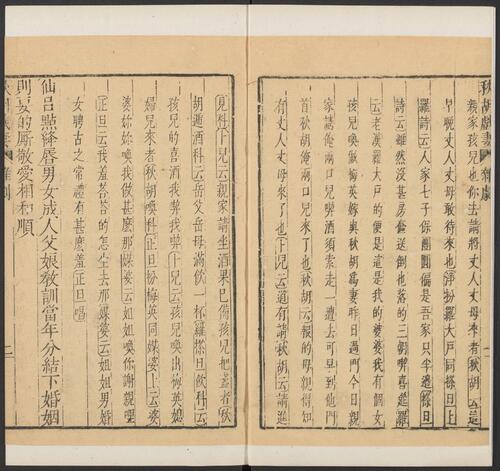 秋胡戲妻 雜劇
親家孩兒也你去請將丈人丈母來者秋胡云這
早晚丈人丈母敢待來也淨扮羅大戶同搽旦上
羅詩云人家七子保團圓偏是吾家只半邊搽旦
詩云雖然沒甚房奩送倒也落的三朝喫喜筵羅
云老漢羅大戶的便是這是我的婆婆我有個女
孩兒喚做梅英嫁與秋胡爲妻昨日過門今日親
家請俺兩口兒喫酒須索走一遭去可早到他門
首秋胡俺兩口兒來了也秋胡云報的母親得知
有丈人丈母來了也卜兒云道有請秋胡云請進
見科卜兒云親家請坐酒果巳備孩兒把盞者秋
胡遞酒科云岳父岳母滿飲一杯羅搽旦飲科云
孩兒的喜酒我喫我喫卜兒云孩兒喚出梅英媳
婦兒來者秋胡喚科正旦扮梅英同媒婆上云婆
婆妳喚我做甚麼那媒婆云姐姐喚你謝親哩
正旦云我羞答答的怎生去那媒婆云姐姐男婚
女聘古之常禮有甚麼羞正旦唱
仙呂點絳唇男女成人父娘教訓當年分結下婚姻
則要的厮敬愛相和順
秋胡戲妻 雜劇 二